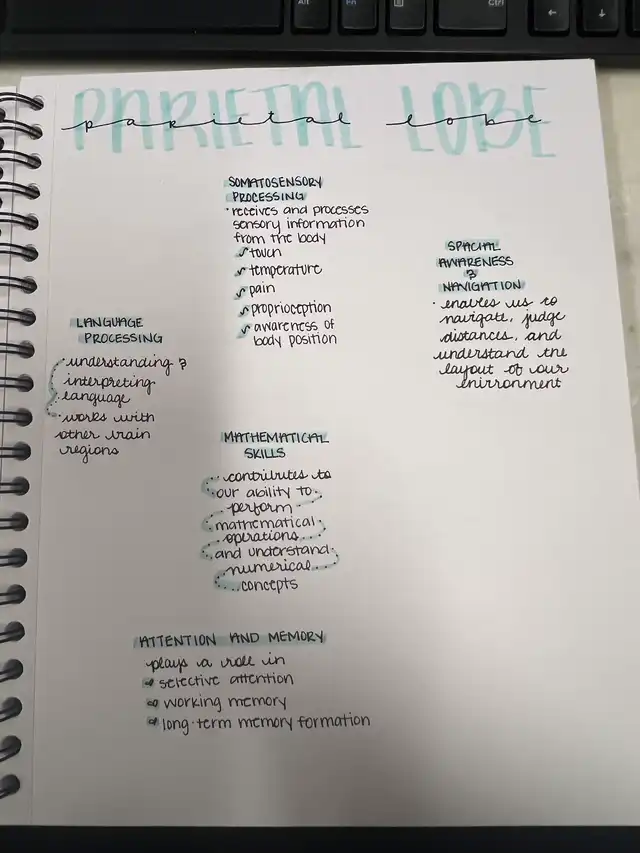 Alt
Fn
Ctrl
PARIETAL LOBE
parietal lobe
SOMATOSENSORY
PROCESSING
• receives and processes
sensory information
from the body
touch
temperature
pain
proprioception
awareness of
body position
SPACIAL
AWARENESS
&
NAVIGATION
• enables us to
navigate, judge
distances, and
understand the
layout of our
enirronment
LANGUAGE
PROCESSING
• understanding &
interpreting
language
• works with
other brain
regions
MATHEMATICAL
SKILLS
contributes to
our ability to
perform
mathematical
operations
and understand
numerical
concepts
ATTENTION AND MEMORY
plays a role in
selective attention
working memory
long-term memory formation